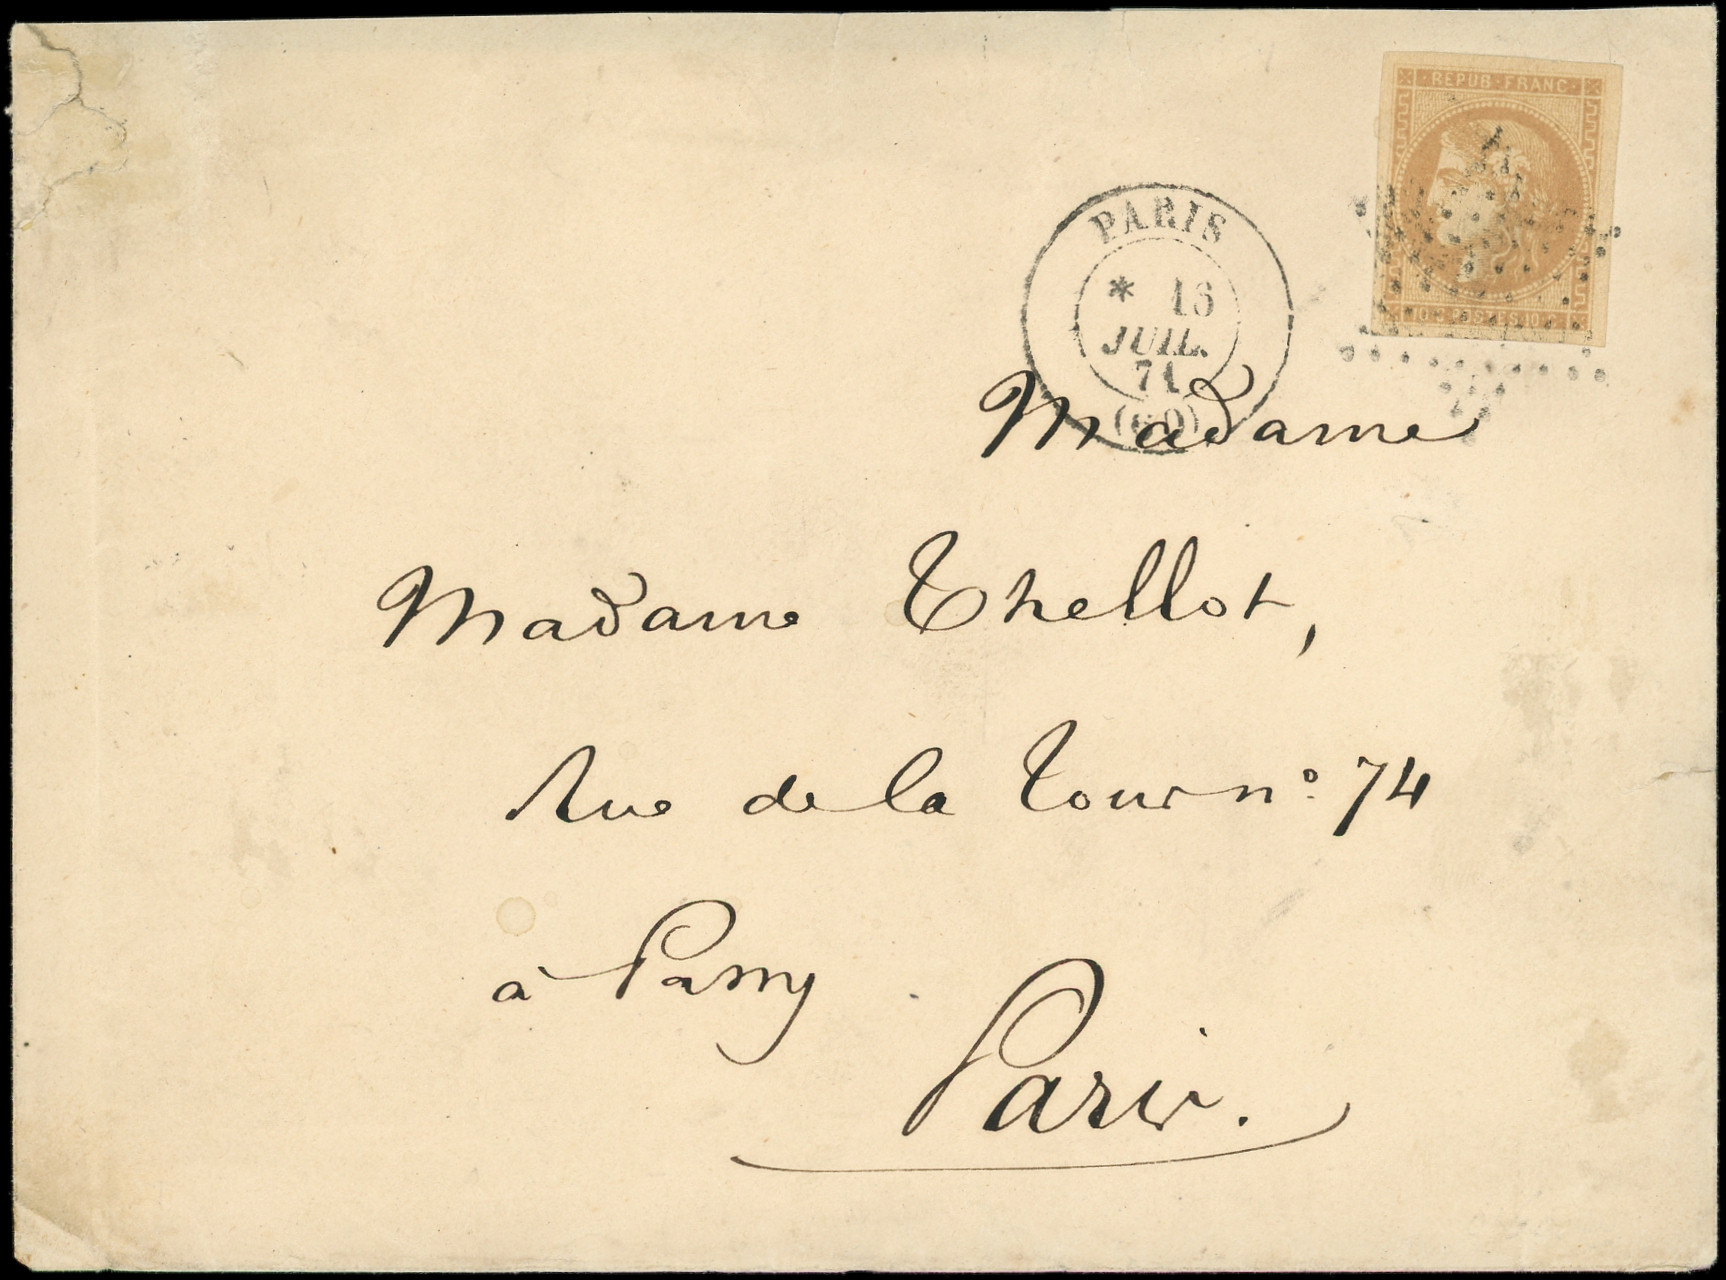 REPUB·FRANC·
10 C POSTES 10 C
PARIS
* 16
JUIL.
71
(60)
Madame
Madame Thellot,
Rue de la Tour n° 74
à Passy
Paris.